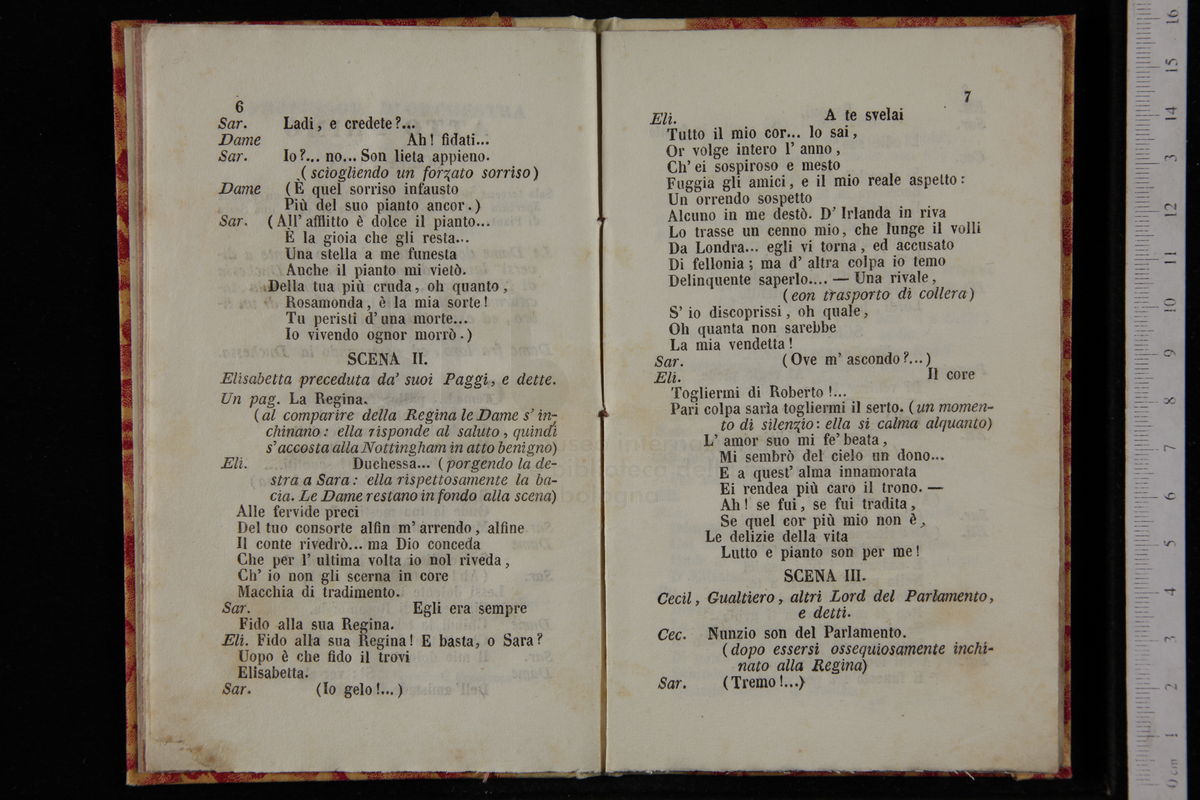 6
Sar. Ladi, e credete?...
Dame Ah! fidati...
Sar. Io?... no... Son lieta appieno.
(sciogliendo un forzato sorriso)
Dame (È quel sorriso infausto
Più del suo pianto ancor.)
Sar. (All' afflitto è dolce il pianto...
È la gioia che gli resta...
Una stella a me funesta
Anche il pianto mi vietò.
Della tua più cruda, oh quanto,
Rosamonda, è la mia sorte!
Tu peristi d' una morte...
Io vivendo ognor morrò.)
SCENA II.
Elisabetta preceduta da' suoi Paggi, e dette.
Un pag. La Regina.
(al comparire della Regina le Dame s' in-
chinano: ella risponde al saluto, quindi
s' accosta alla Nottingham in atto benigno)
Eli. Duchessa... (porgendo la de-
stra a Sara: ella rispettosamente la ba-
cia. Le Dame restano in fondo alla scena)
Alle fervide preci
Del tuo consorte alfin m' arrendo, alfine
Il conte rivedrò... ma Dio conceda
Che per l' ultima volta io nol riveda,
Ch' io non gli scerna in core
Macchia di tradimento.
Sar. Egli era sempre
Fido alla sua Regina.
Eli. Fido alla sua Regina! E basta, o Sara?
Uopo è che fido il trovi
Elisabetta.
Sar. (Io gelo!...)
7
Eli. A te svelai
Tutto il mio cor... lo sai,
Or volge intero l' anno,
Ch' ei sospiroso e mesto
Fuggia gli amici, e il mio reale aspetto:
Un orrendo sospetto
Alcuno in me destò. D' Irlanda in riva
Lo trasse un cenno mio, che lunge il volli
Da Londra... egli vi torna, ed accusato
Di fellonia; ma d' altra colpa io temo
Delinquente saperlo.... — Una rivale,
(eon trasporto di collera)
S' io discoprissi, oh quale,
Oh quanta non sarebbe
La mia vendetta!
Sar. (Ove m' ascondo?...)
Eli. Il core
Togliermi di Roberto!...
Pari colpa sarìa togliermi il serto. (un momen-
to di silenzio: ella si calma alquanto)
L' amor suo mi fe' beata,
Mi sembrò del cielo un dono...
E a quest' alma innamorata
Ei rendea più caro il trono. —
Ah! se fui, se fui tradita,
Se quel cor più mio non è,
Le delizie della vita
Lutto e pianto son per me!
SCENA III.
Cecil, Gualtiero, altri Lord del Parlamento,
e detti.
Cec. Nunzio son del Parlamento.
(dopo essersi ossequiosamente inchi-
nato alla Regina)
Sar. (Tremo!...)